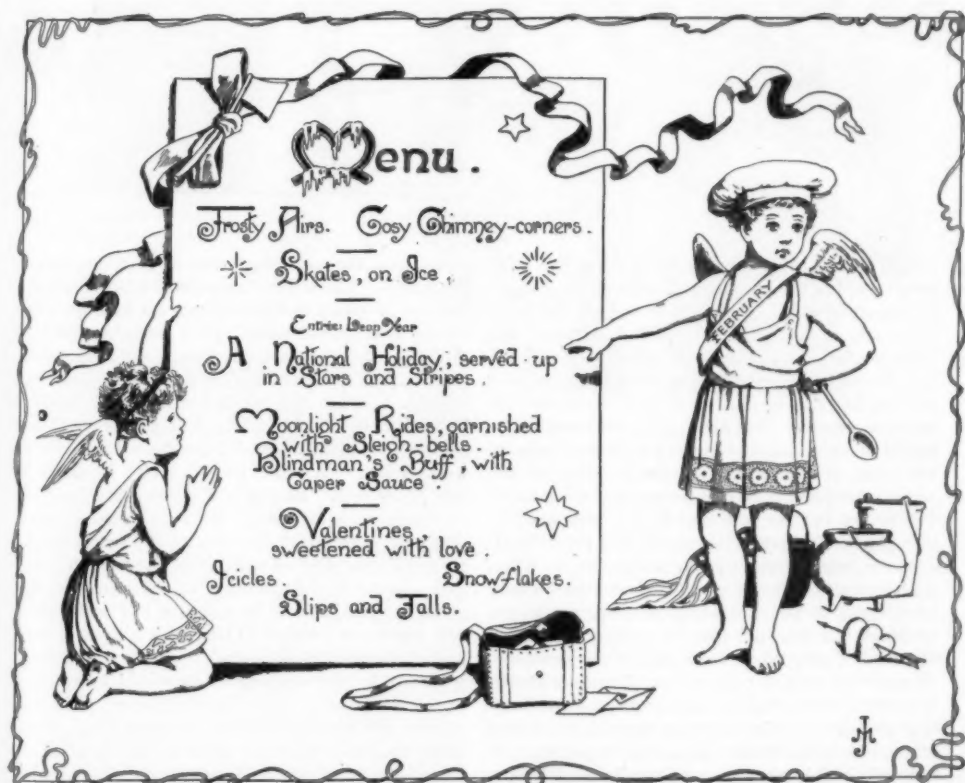 Menu.
Frosty Airs. Cosy Chimney-corners.
Skates, on Ice.
Entrée: Leap Year
A National Holiday, served up
in Stars and Stripes.
Moonlight Rides, garnished
with Sleigh-bells.
Blindman's Buff, with
Caper Sauce.
Valentines,
sweetened with love.
Icicles. Snow-flakes.
Slips and Falls.
FEBRUARY